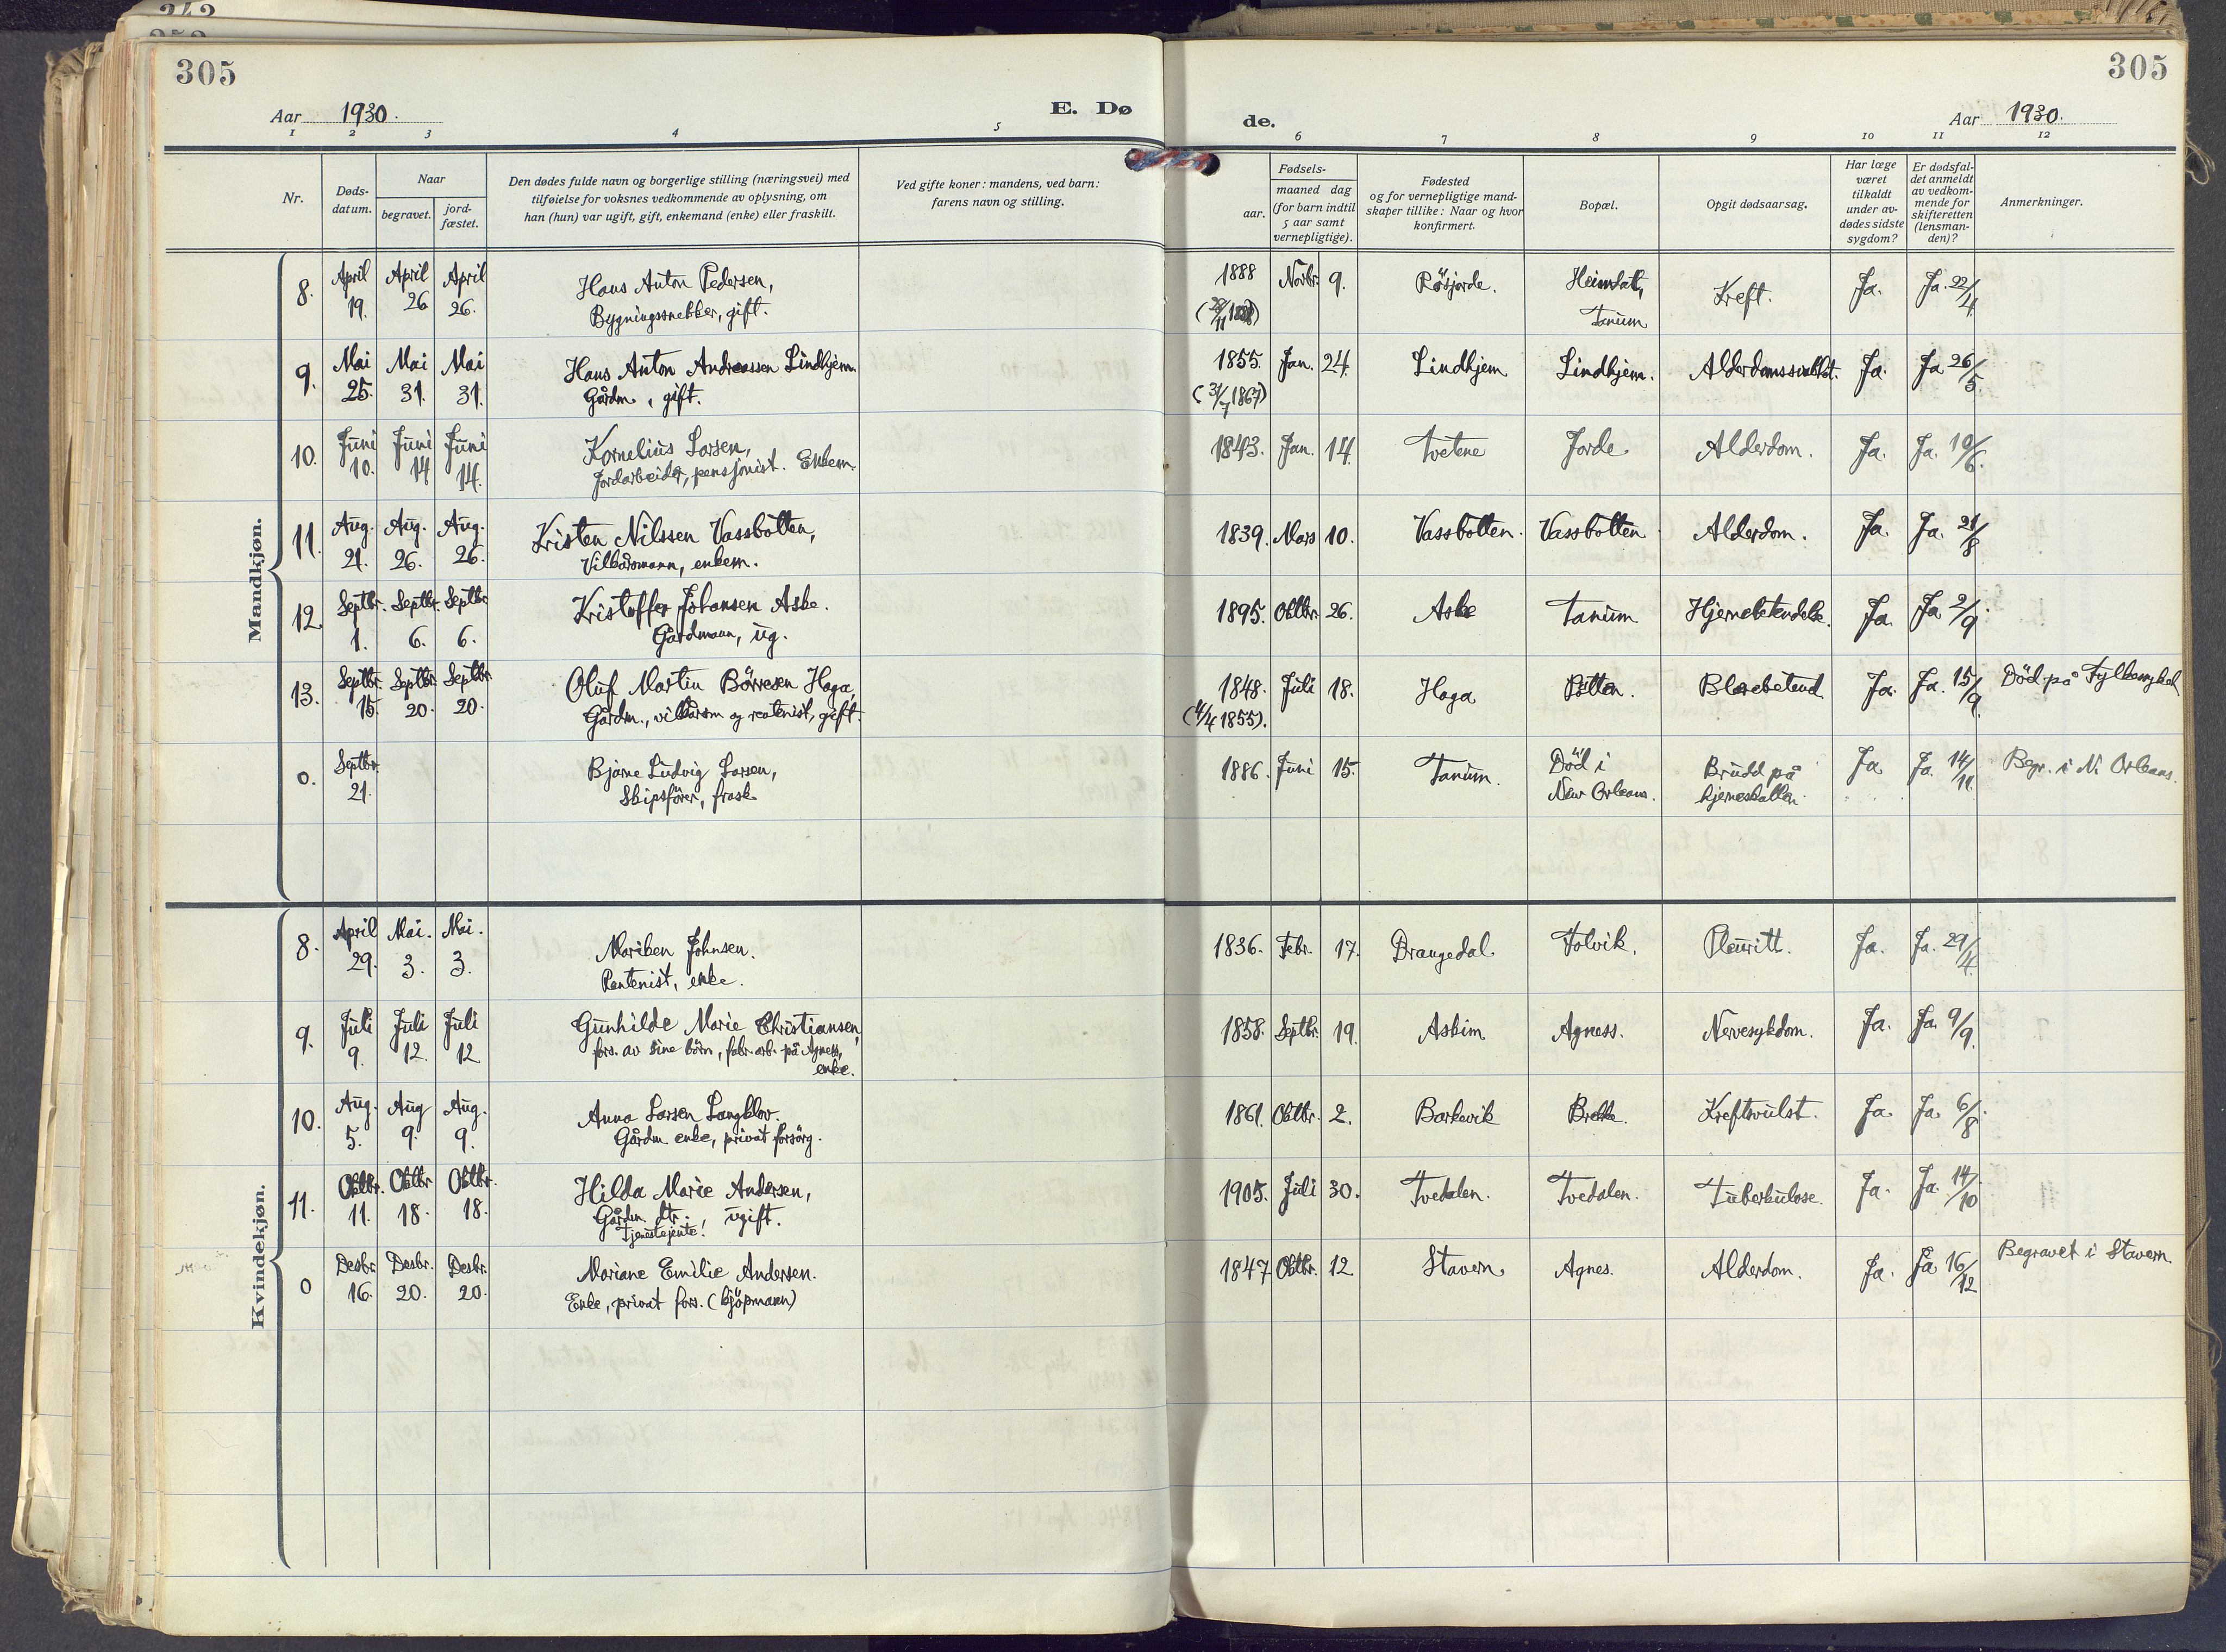 305
305
Aar 1930.
E. Dø
de.
Aar 1930.
1 2 3 4 5 6 7 8 9 10 11 12
Nr.
Døds-
datum.
Naar
begravet.
jord-
fæstet.
Den dødes fulde navn og borgerlige stilling (næringsvei) med
tilføielse for voksnes vedkommende av oplysning, om
han (hun) var ugift, gift, enkemand (enke) eller fraskilt.
Ved gifte koner: mandens, ved barn:
farens navn og stilling.
Fødsels-
aar.
maaned dag
(for barn indtil
5 aar samt
vernepligtige).
Fødested
og for vernepligtige mand-
skaper tillike: Naar og hvor
konfirmert.
Bopæl.
Opgit dødsaarsag.
Har læge
været
tilkaldt
under av-
dødes sidste
sygdom?
Er dødsfal-
det anmeldt
av vedkom-
mende for
skifteretten
(lensman-
den)?
Anmerkninger.
Mandkjøn.
8. April 19. April 26 April 26. Hans Anton Pedersen,
Bygningssnekker, gift.
1888 Novbr. 9. Rösjorde. Heimdat, Tanum Kreft. Ja. Ja. 22/4
9. Mai 25. Mai 31. Mai 31. Hans Anton Andreassen Lindhjem.
Gårdm., gift.
1855. Jan. 24. Lindhjem Lindhjem. Ja. Ja 26/5
(3/7 1867)
10. Juni 10. Juni 14 Juni 14. Kornelius Larsen,
Jordarbeider, pensjonist. Enkem.
1843. Jan. 14. Tvetene Jorde Alderdom. Ja. Ja. 10/6.
11. Aug. 21. Aug. 26. Aug. 26. Kristen Nilssen Vassbotten,
Vilkårsmann, enkem.
1839. Mars 10. Vassbotten. Vassbotten Alderdom. Ja. Ja. 21/8
12. Septbr. 1. Septbr. 6. Septbr 6. Kristoffer Johansen Aske.
Gårdmann, ug.
1895. Oktbr. 26. Aske Tanum Hjernebetendelse. Ja. Ja 2/9
13. Septbr. 15. Septbr. 20. Septbr 20. Oluf Martin Börresen Haga,
Gårdm., vilkårsm og rentenist, gift.
1848. Juli 18. Haga Blærebetend. Ja. Ja. 15/9 Död på Fylkessykeh
(4/4 1855).
0. Septbr. 21. Bjarne Ludvig Larsen,
Skipsförer, frask
1886. Juni 15. Tanum. Död i New Orleans. Brudd på hjerneskallen. Ja Ja. 14/11 Begr. i N. Orleans.
Kvindekjøn.
8. April 29. Mai. 3. Mai. 3. Mariken Johnsen.
Rentenist, enke.
1836. Febr. 17. Drangedal. Folvik. Pleuritt. Ja. Ja. 29/4
9. Juli 9. Juli 12. Juli 12 Gunhilde Marie Christiansen,
fors. av sine börn, fabr. arb. på Agness,
enke.
1858. Septbr. 19. Askim Agness. Nervesykdom. Ja. Ja. 9/9.
10. Aug. 5. Aug 9. Aug. 9. Anna Larsen Langklov.
Gårdm enke, privat forsörg.
1861. Oktbr. 2. Barkevik Brekke. Kreftsvulst. Ja. Ja. 6/8
11. Oktbr. 11. Oktbr 18. Oktbr. 18. Hilda Marie Andersen,
Gårdm. dtr., ugift.
Tjenestejente.
1905. Juli 30. Tvedalen. Tvedalen. Tuberkulose. Ja. Ja. 14/10
0 Desbr. 16. Desbr. 20. Desbr. 20. Mariane Emilie Andersen.
Enke, privat fors. (kjöpmann)
1847 Oktbr. 12 Stavern Agnes. Alderdom. Ja. Ja 16/12 Begravet i Stavern.